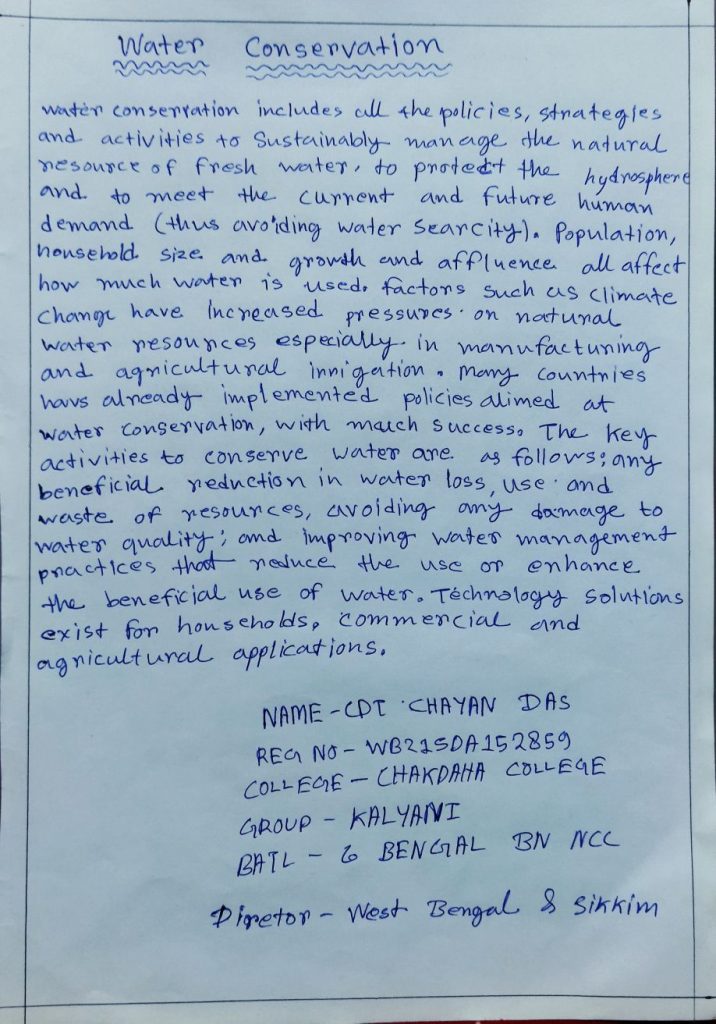 Water Conservation
water conservation includes all the policies, strategies
and activities to Sustainably manage the natural
resource of fresh water, to protect the hydrosphere
and to meet the current and future human
demand (thus avoiding water searcity). Population,
household size and growth and affluence all affect
how much water is used. factors such as climate
change have Increased pressures on natural
water resources especially in manufacturing
and agricultural irrigation. many countries
havs already implemented policies alimed at
water conservation, with mauch success. The key
activities to conserve water are as follows: any
beneficial reduction in water loss, use and
waste of resources, avoiding any damage to
water quality; and improving water management
practices that reduce the use or enhance
the beneficial use of water. Technology solutions
exist for households, commercial and
agricultural applications.
NAME - CDT CHAYAN DAS
REG NO - WB21SDA152859
COLLEGE - CHAKDAHA COLLEGE
GROUP - KALYANI
BATL - 6 BENGAL BN NCC
Diretor - West Bengal & Sikkim